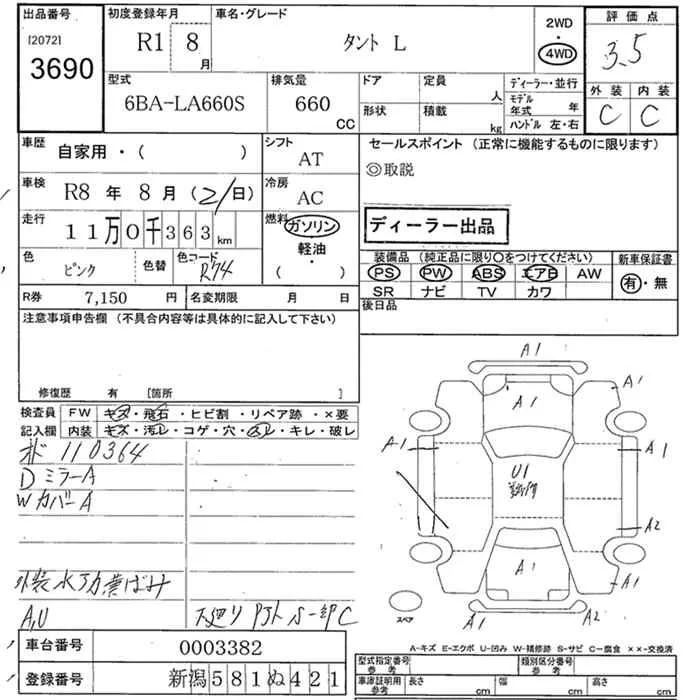 出品番号 初度登録年月 車名・グレード 2WD 評価点
[2072]
3690 R1 8月 タント L 4WD 3.5
型式 排気量 ドア 定員 人 ディーラー・並行 外装 内装
6BA-LA660S 660 CC 形状 積載 kg モデル年式 年 C C
ハンドル 左・右
車歴 自家用・( ) シフト AT セールスポイント (正常に機能するものに限ります)
◎取説
車検 R8年 8月 (21日) 冷房 AC
走行 11万0千363km 燃料 ガソリン ディーラー出品
軽油
・
( )
色 ピンク 色替 色コード R74 装備品 (純正品に限り○をつけてください) 新車保証書
PS PW ABS エアB AW 有・無
R券 7,150円 名変期限 月 日 SR ナビ TV カワ
注意事項申告欄 (不具合内容等は具体的に記入して下さい) 後日品
修復歴 有 [箇所 ]
検査員 FW キズ・飛石・ヒビ割・リペア跡・×要
記入欄 内装 キズ・汚レ・コゲ・穴・スレ・キレ・破レ
オド 110364
DミラーA
WカバーA
A1
A1
A1
A1
A1
U1
A2
A1
A1
A2
スペア
外装
A,U 下廻り S一部C
A-キズ E-エクボ U-凹み W-補修跡 S-サビ C-腐食 ××-交換済
車台番号 0003382
登録番号 新潟581ぬ421
型式指定番号 参考 類別区分番号 参考
車庫証明用 参考 長さ cm 幅 cm 高さ cm